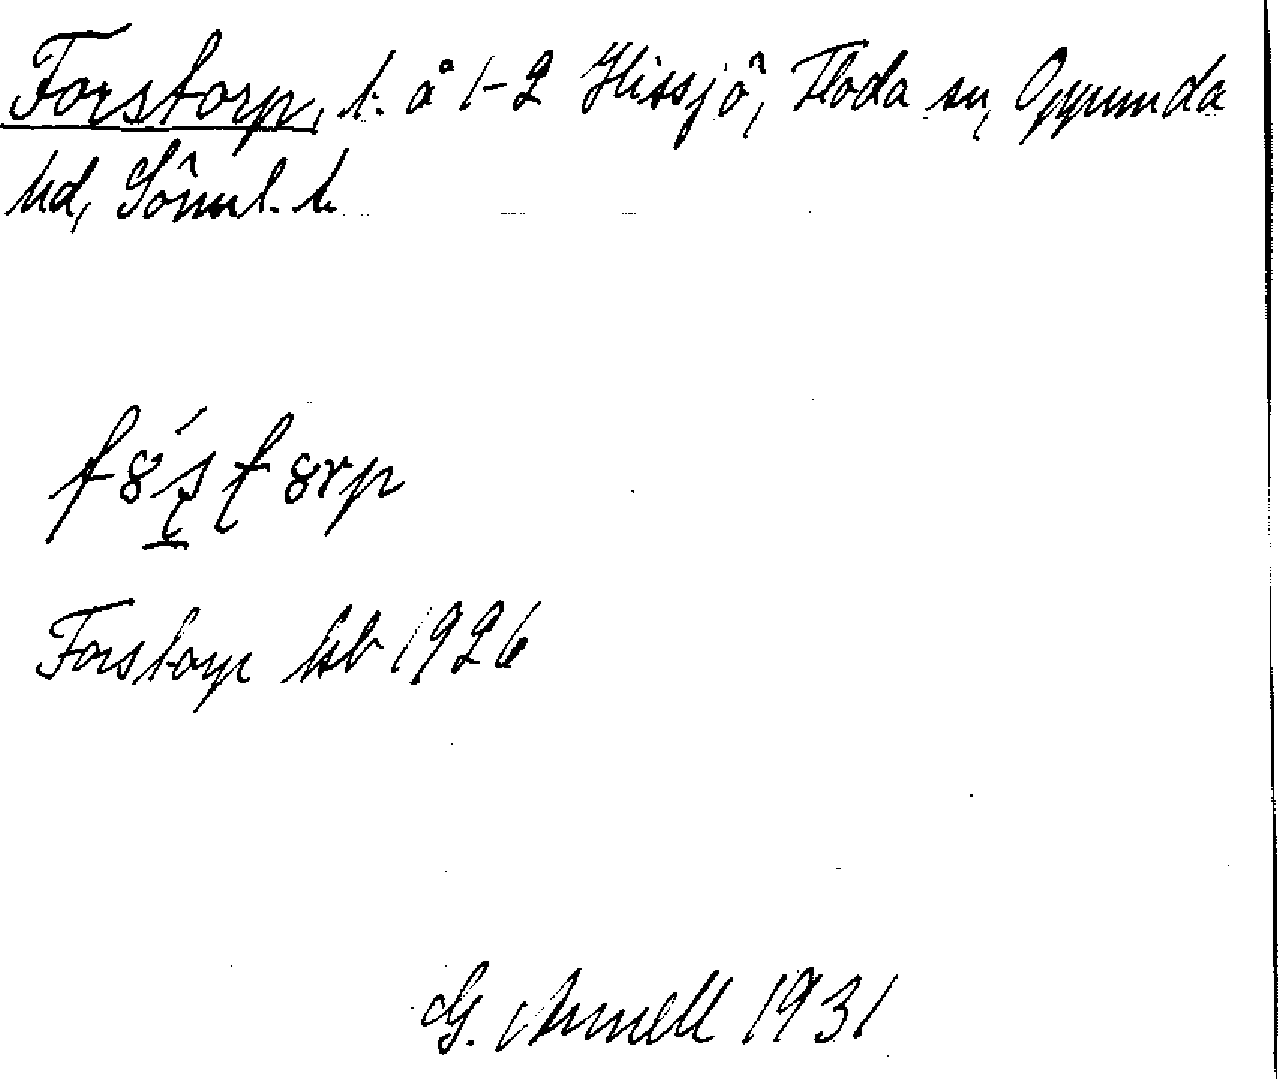 Forstorp, t. å 1-2 Hissjö, Floda sn, Oppunda
hd, Sörml. l.
Forstorp hb 1926
G. Arnell 1931